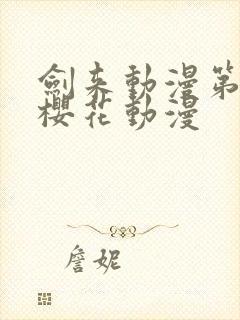 劍來動漫第
櫻花動漫
詹妮